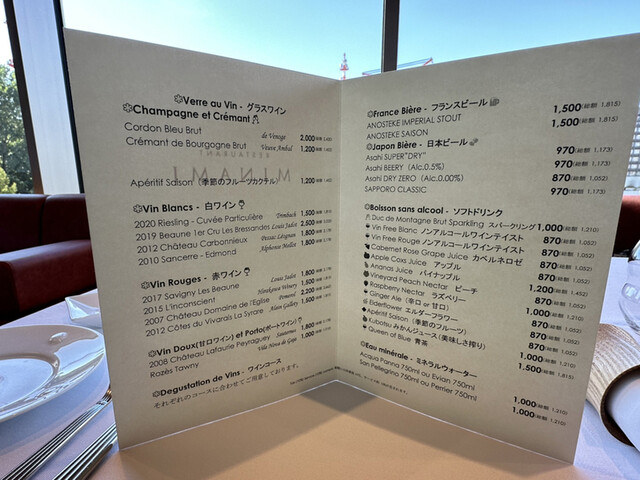 Verre au Vin - グラスワイン
Champagne et Crémant
Cordon Bleu Brut de Venoge 2,000
Crémant de Bourgogne Brut Veuve Ambal 1,200
RESTAURANT
MINAMI
Apéritif Saison (季節のフルーツカクテル) 1,200
Vin Blancs - 白ワイン
2020 Riesling - Cuvée Particulière Trimbach 1,500
2019 Beaune 1er Cru Les Bressandes Louis Jadot 2,500
2012 Château Carbonnieux Pessac Léognan
2010 Sancerre - Edmond Alphonse Mellot 1,800
Vin Rouges - 赤ワイン
2017 Savigny Les Beaune Louis Jadot 1,800
2015 L'inconscient Winery
2007 Château Domaine de l'Eglise Pomerol
2012 Côtes du Vivarais La Syrare Alain Gallety
Vin Doux(甘口ワイン) et Porto(ポートワイン)
2008 Château Lafaurie Peyraguey - Sauternes 1,800
Rozès Tawny Vila Nova de Gaia 1,000
Degustation de Vins - ワインコース
それぞれのコースに合わせてご用意しております。
France Bière - フランスビール
ANOSTEKE IMPERIAL STOUT 1,500(総額 1,815)
ANOSTEKE SAISON 1,500(総額 1,815)
Japon Bière - 日本ビール
Asahi SUPER"DRY" 970(総額 1,173)
Asahi BEERY (Alc.0.5%) 970(総額 1,173)
Asahi DRY ZERO (Alc.0.00%) 870(総額 1,052)
SAPPORO CLASSIC 970(総額 1,173)
Boisson sans alcool - ソフトドリンク
Duc de Montagne Brut Sparkling スパークリング 1,000(総額 1,210)
Vin Free Blanc ノンアルコールワインテイスト 870(総額 1,052)
Vin Free Rouge ノンアルコールワインテイスト 870(総額 1,052)
Cabernet Rose Grape Jus カベルネロゼ
Apple Coxs Juice アップル
Ananas Juice パイナップル
Vineyard Peach Nectar ピーチ
Raspberry Nectar ラズベリー
Ginger Ale (辛口 or 甘口)
Elderflower エルダーフラワー
Apéritif Saison (季節のフルーツ)
Kubotsu みかんジュース(美味しさ搾り)
Queen of Blue 青茶
Eau minérale - ミネラルウォーター
Acqua Panna 750ml ou Evian 750ml 1,000(総額 1,210)
San Pellegrino 750ml ou Perrier 750ml 1,000(総額 1,210)